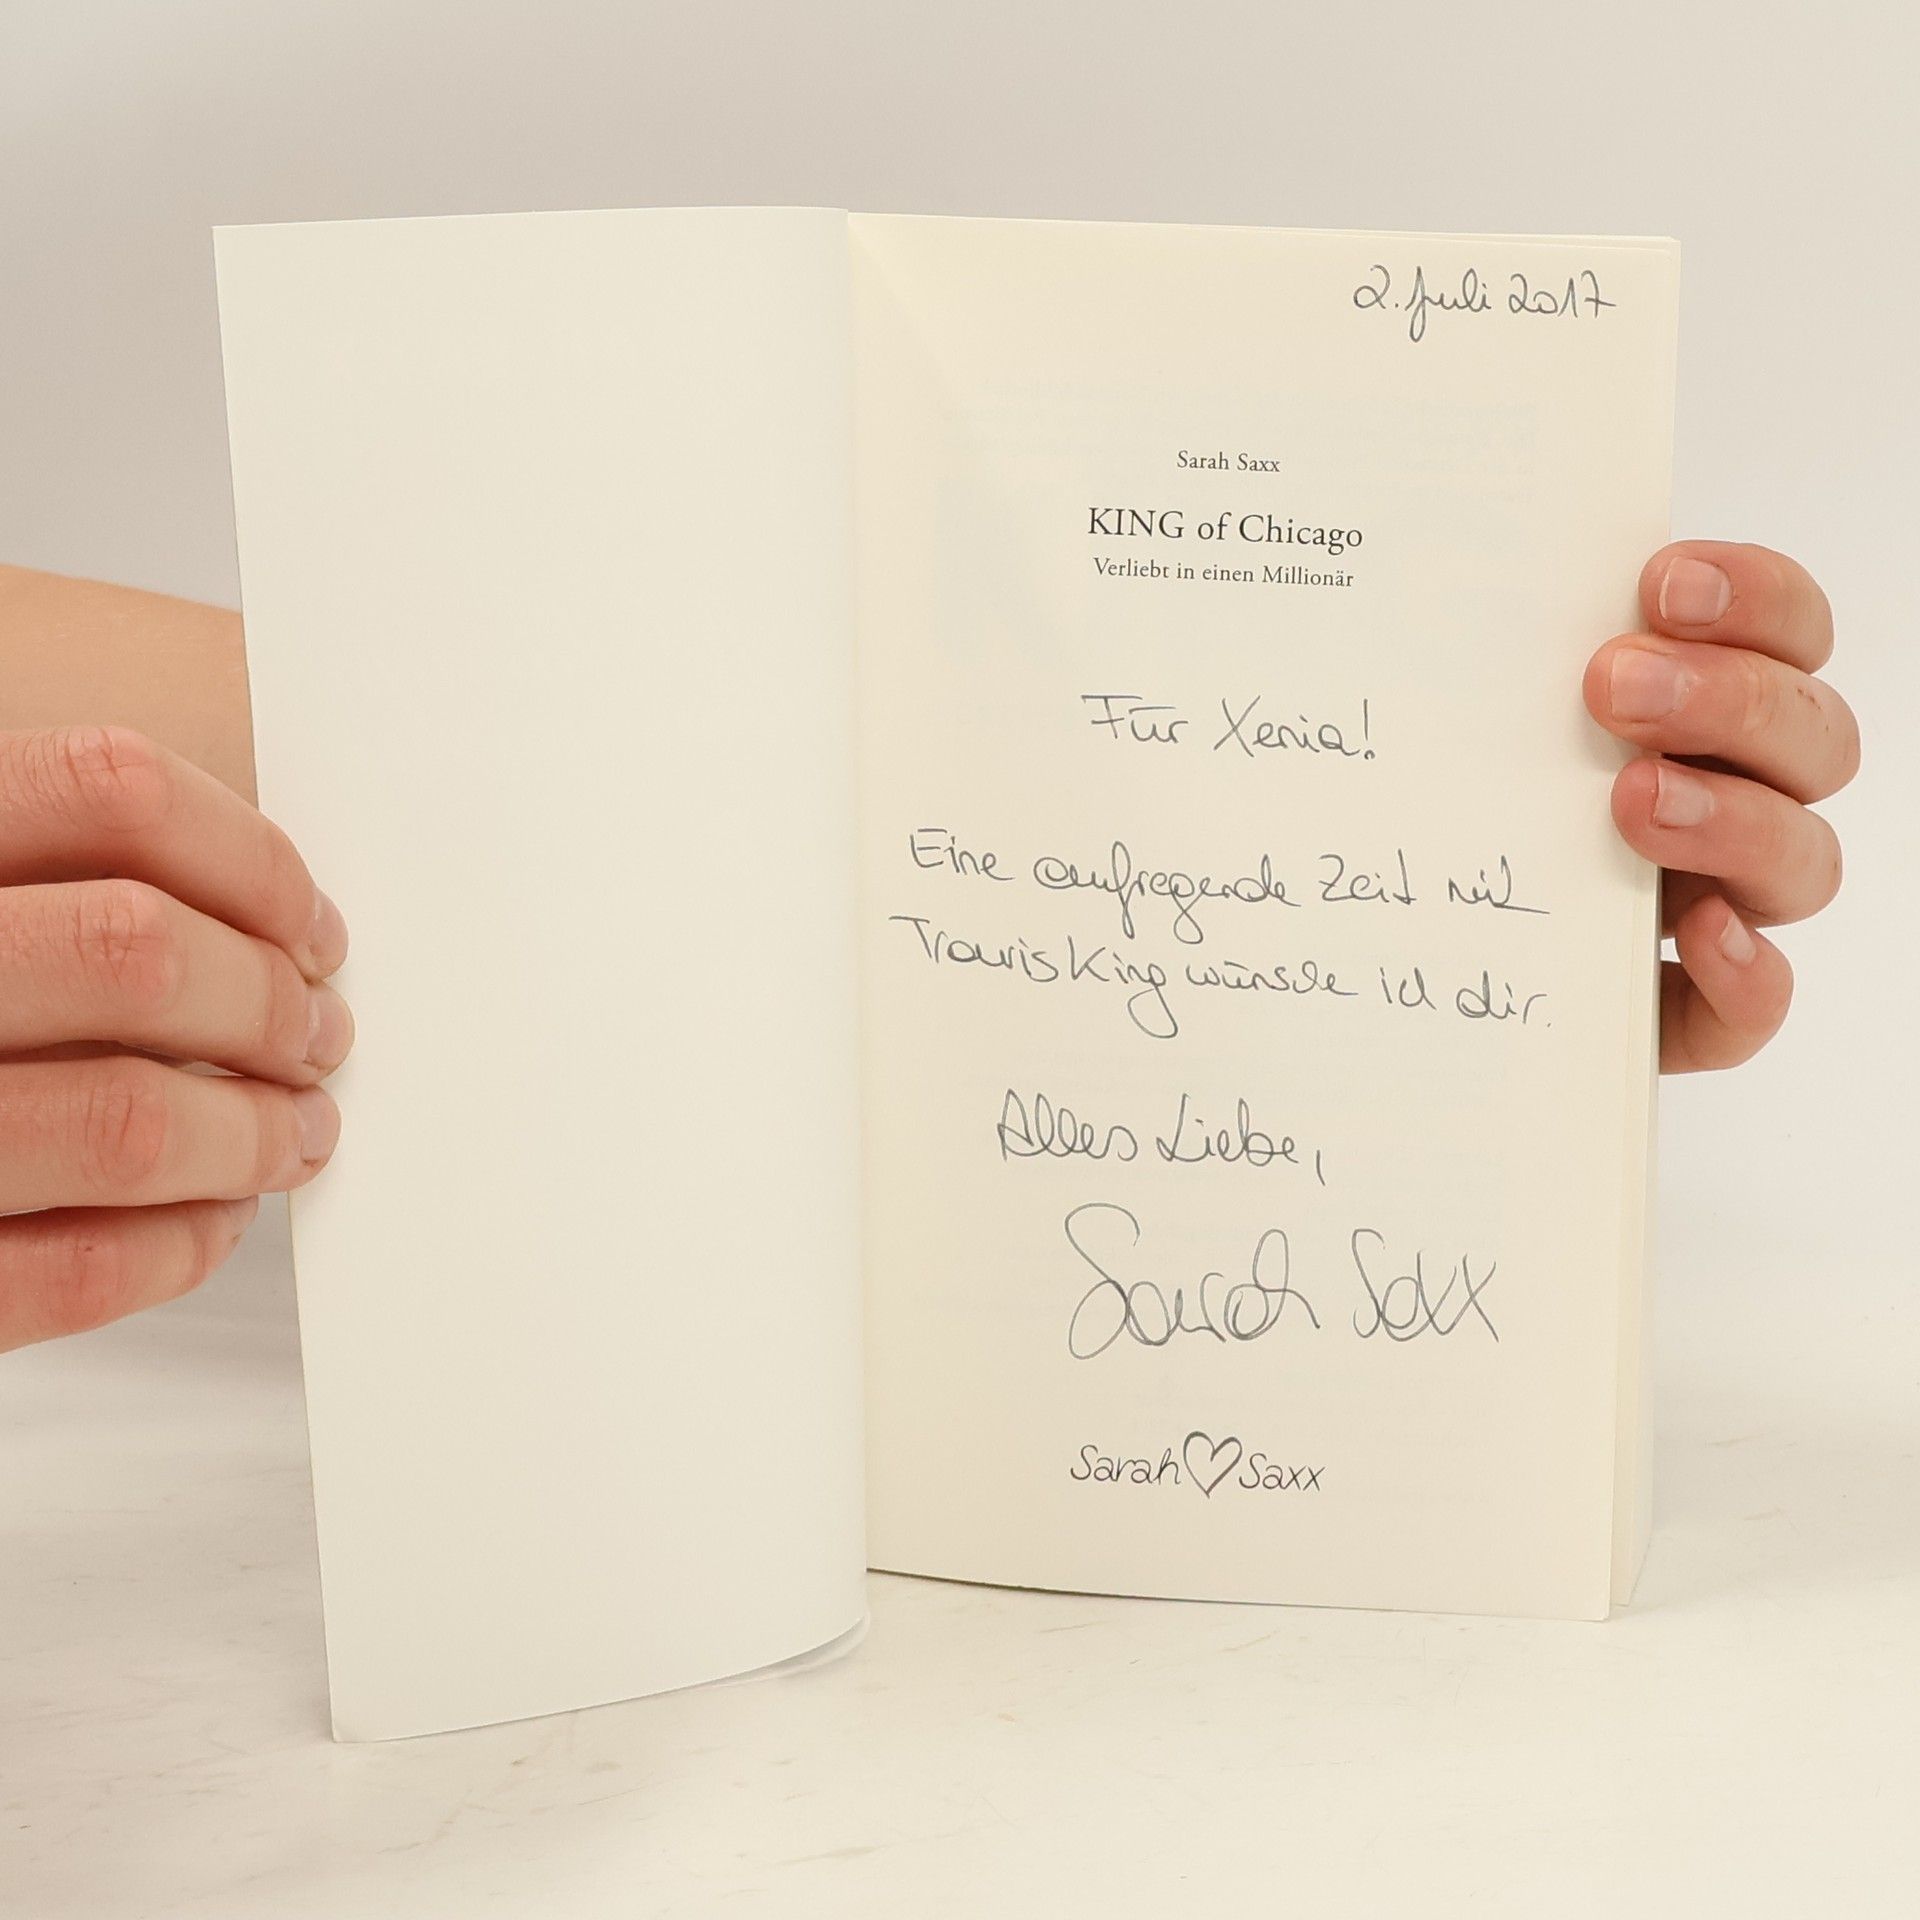 2. Juli 2017
Sarah Saxx
KING of Chicago
Verliebt in einen Millionär
Für Xenia!
Eine aufregende Zeit mit
Travis King wünsche ich dir.
Alles Liebe,
Sarah Saxx
Sarah♡Saxx